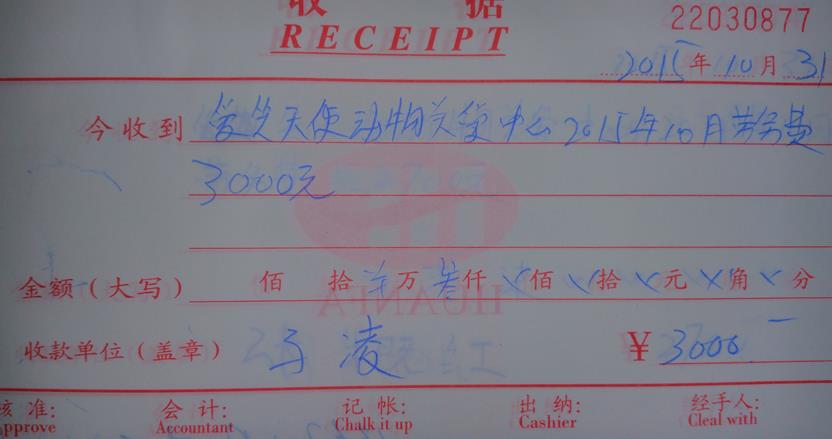 收 据
RECEIPT
22030877
2015年10月31
今收到 爱笑天使动物关爱中心2015年10月劳务费
3000元
金额(大写) 佰 拾 万 叁仟 佰 拾 元 角 分
收款单位(盖章) 马凌 ¥3000-
核 准: 会 计: 记 帐: 出 纳: 经手人:
Approve Accountant Chalk it up Cashier Cleal with
HUANFA